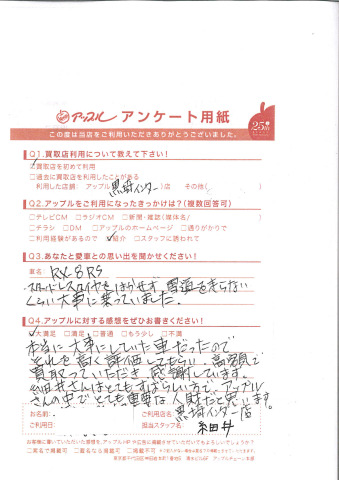 アップル アンケート用紙
25th
この度は当店をご利用いただきありがとうございました。
Q1.買取店利用について教えて下さい!
□買取店を初めて利用
□過去に買取店を利用したことがある
利用した店舗: アップル(黒埼インター)店 その他( )
Q2.アップルをご利用になったきっかけは?(複数回答可)
□テレビCM □ラジオCM □新聞・雑誌(媒体名/ )
□チラシ □DM □アップルのホームページ □通りがかりで
□利用経験があるので □紹介 □スタッフに誘われて
Q3.あなたと愛車との思い出を聞かせください!
車名: RX-8 RS
スタッドレスタイヤをはかせず 雪道を走らない
くらい大事に乗っていました。
Q4.アップルに対する感想をぜひお書きください!
□大満足 □満足 □普通 □もう少し □不満
本当に大事にしていた車だったので
それを高く評価してもらい、高額で
買取っていただき、感謝しています。
細井さんはとてもすばらしい方で、アップル
さんの中でとても重要な人財だと思います。
お名前: ご利用店名: 黒埼インター店
ご利用日: 担当スタッフ名: 細井
お客様に書いていただいた感想を、アップルHPや広告に掲載させていただいてもよろしいでしょうか?
□実名で掲載可 □匿名なら掲載可 □掲載不可